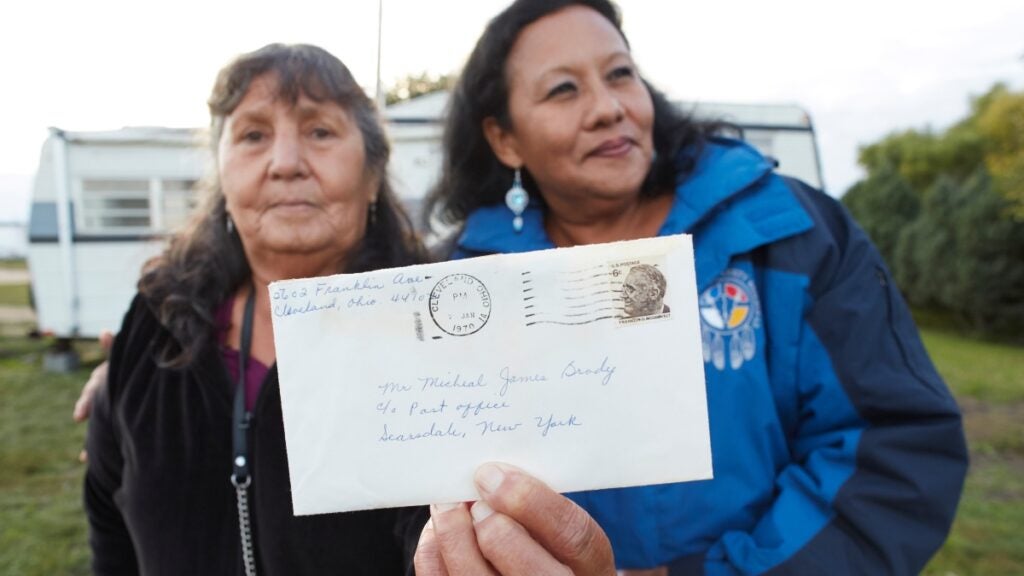 2602 Franklin Ave
Cleveland, Ohio.
CLEVELAND, OHIO
PM
JAN
1970
U.S. POSTAGE
6¢
FRANKLIN D. ROOSEVELT
Mr Micheal James Brody
c/o Post office
Scarsdale, New York